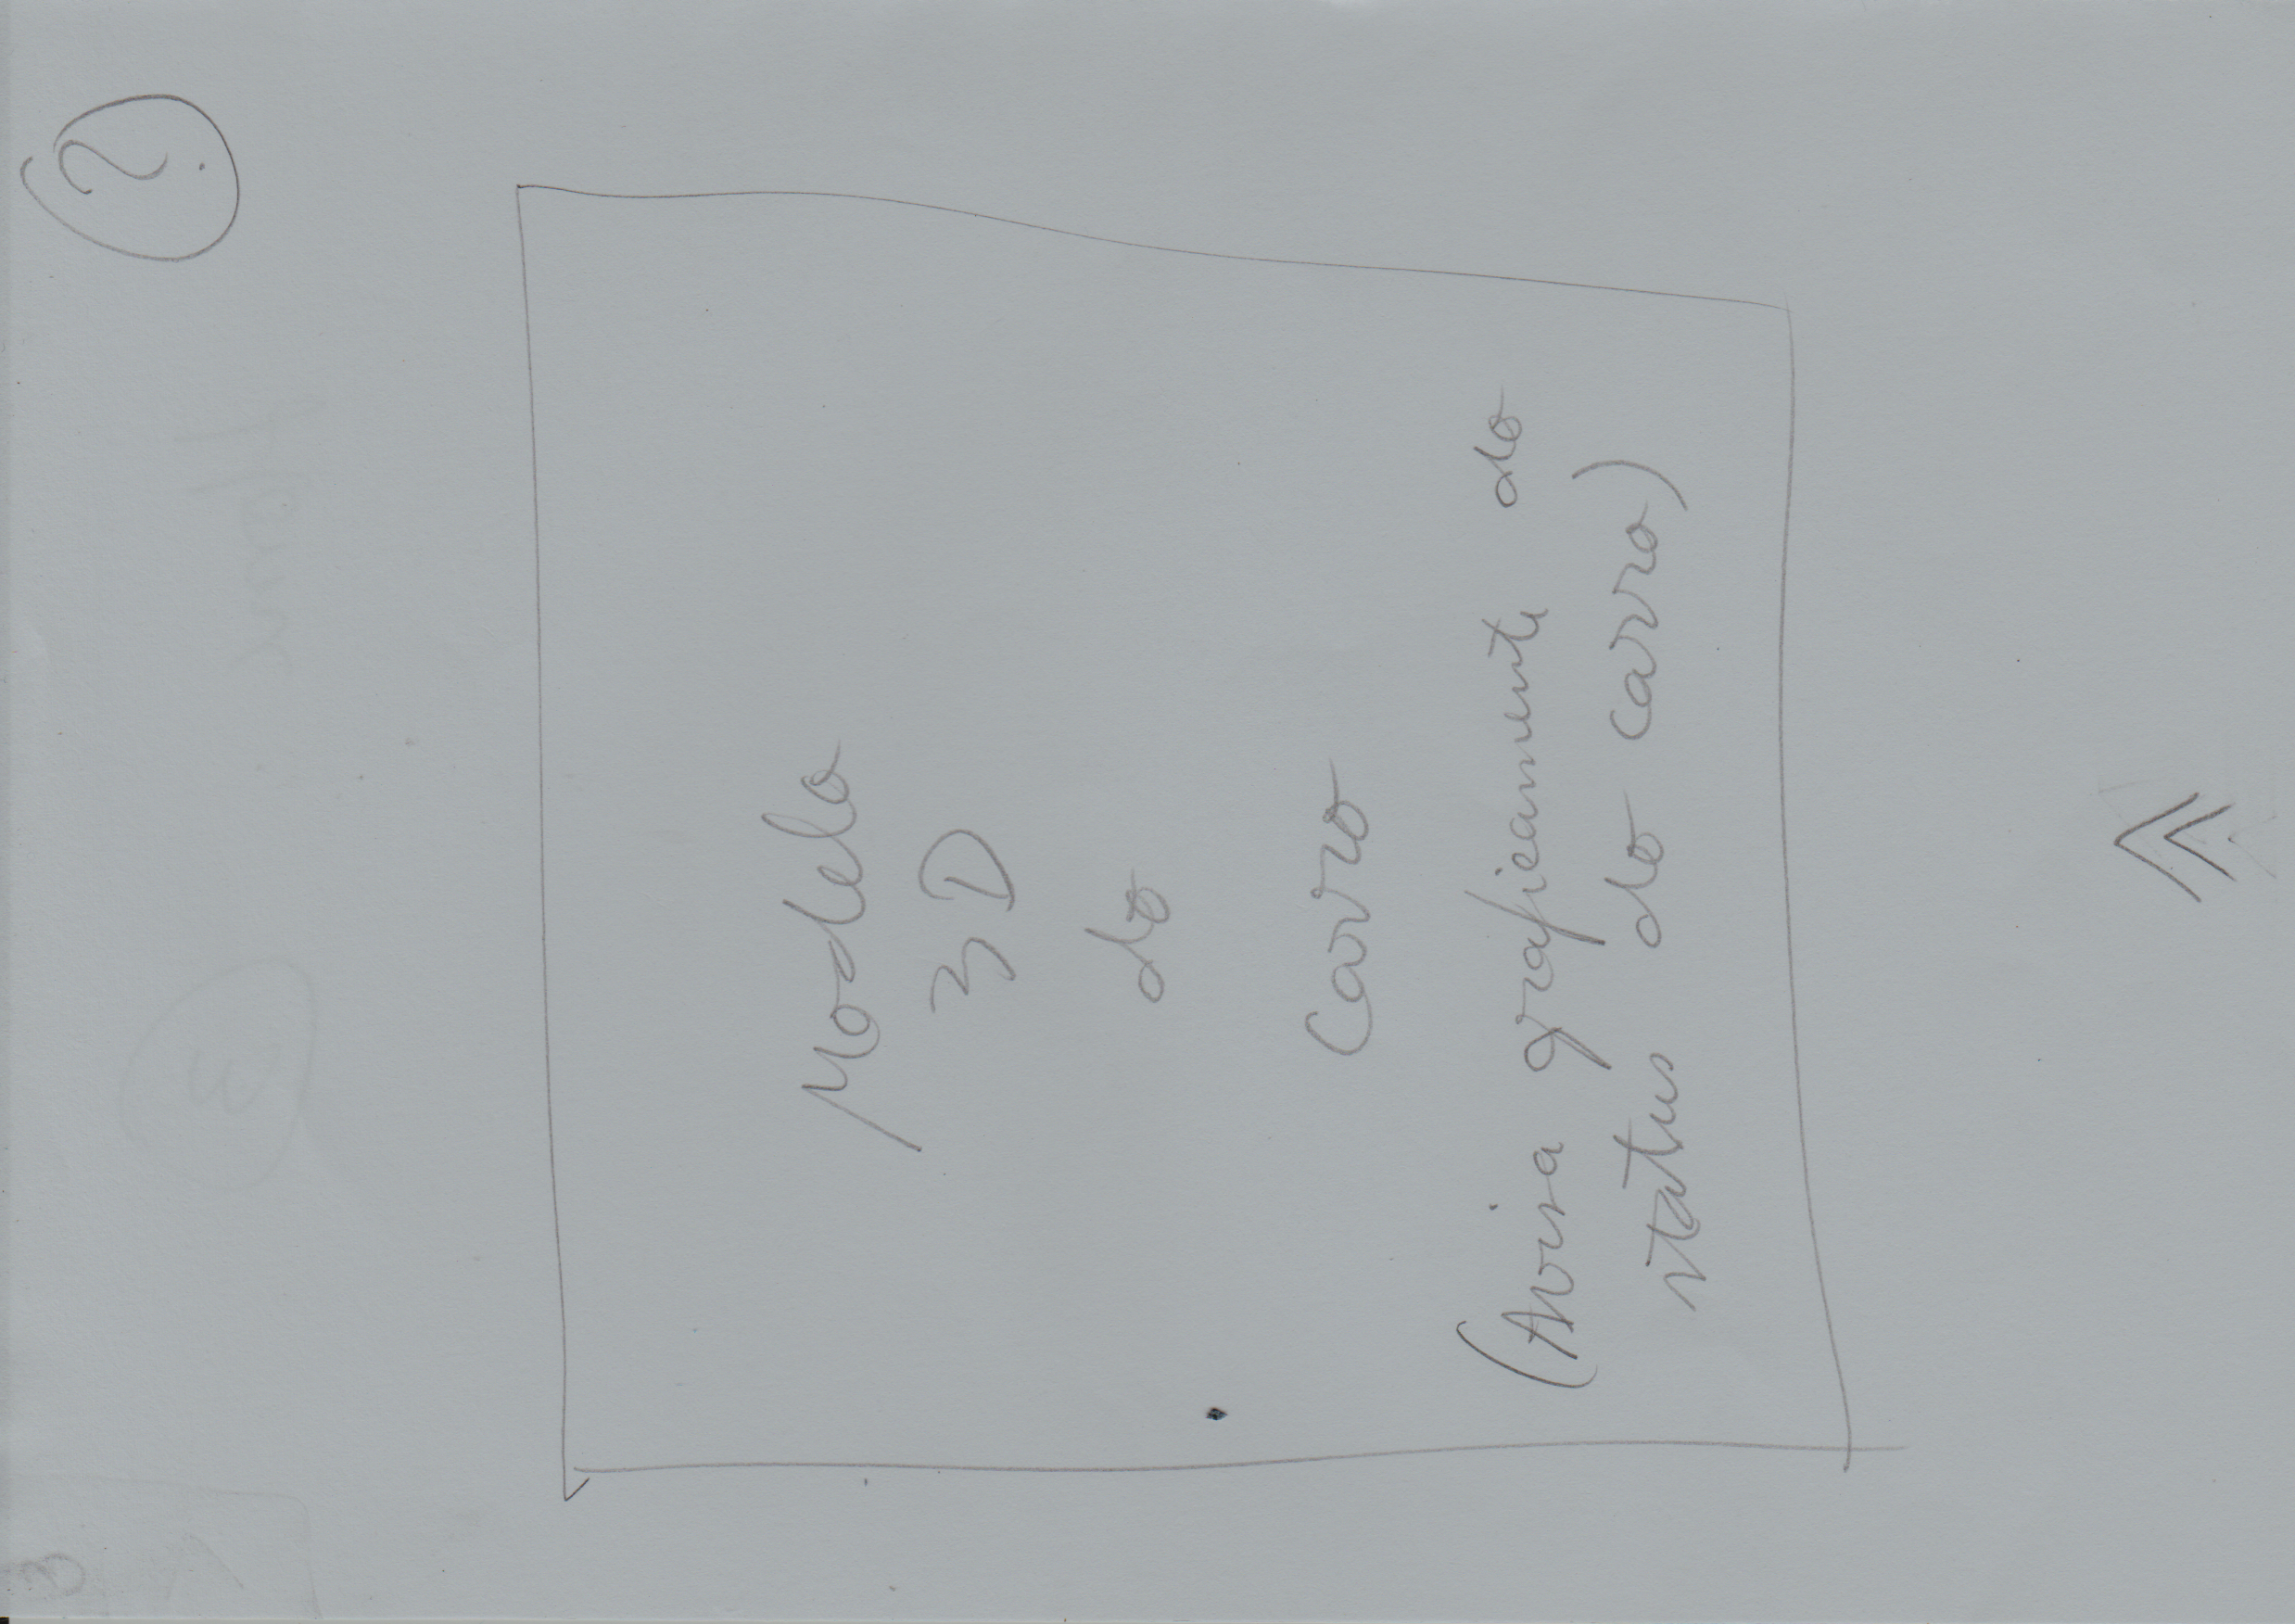 ?
Modelo
3D
do
Carro
(Avisa graficamente do
status do carro)